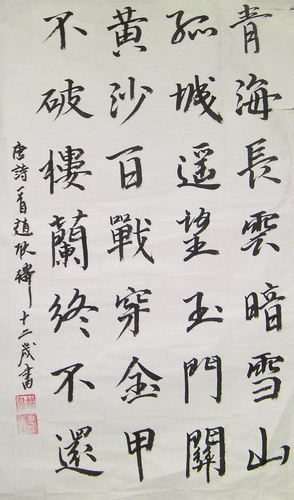 青海長雲暗雪山
孤城遥望玉門關
黄沙百戰穿金甲
不破樓蘭終不還
唐詩一首趙欣緯十二歲書